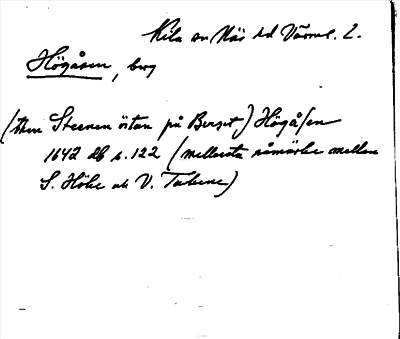 Kila sn Näs hd Värml. l.
Högåsen, berg
(then Steenen östan på Berget) Högåsen
1642 db s. 122 (mellersta råmärke mellan
S. Höke och V. Takene)